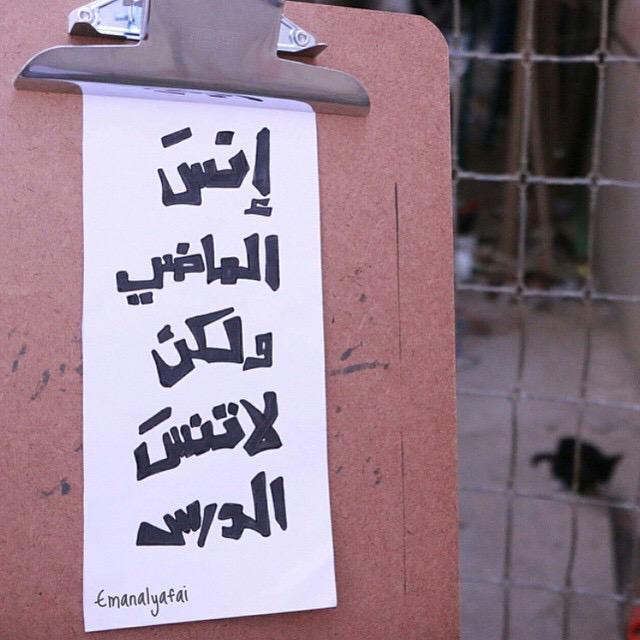 إنسَ
الماضي
ولكن
لا تنسَ
الدرس
Emanalyafai